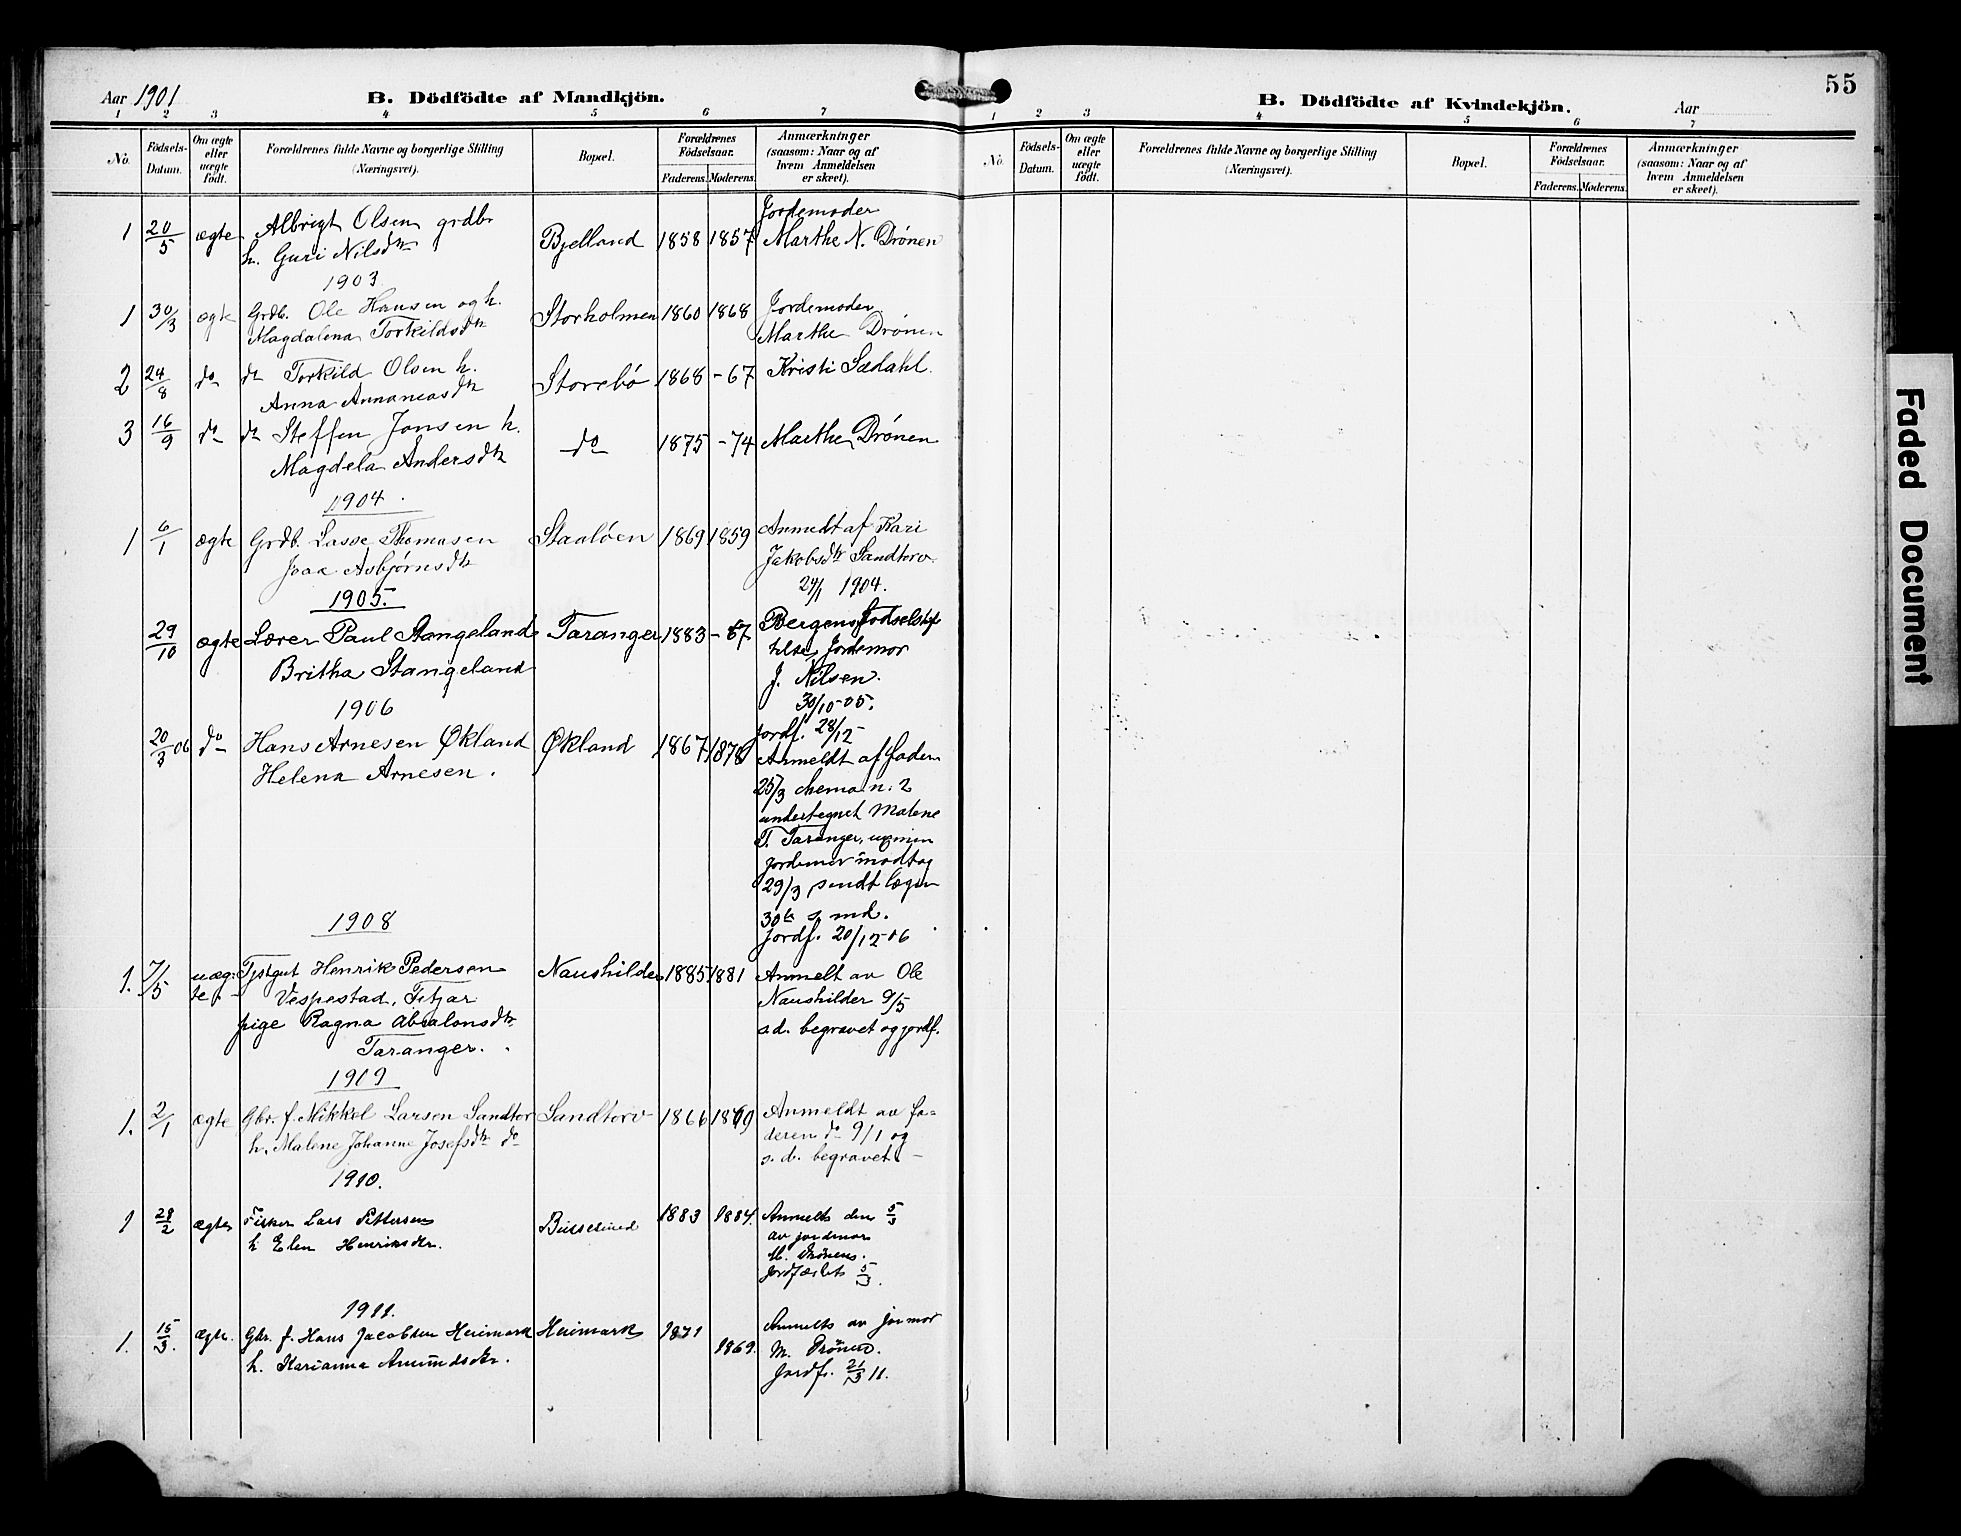 55
Aar 1901 B. Dödfödte af Mandkjön.
1 2 3 4 5 6 7
No. Födsels-Datum. Om ægte eller uægte födt. Forældrenes fulde Navne og borgerlige Stilling (Næringsvei). Bopæl. Forældrenes Födselsaar. Faderens. Moderens. Anmærkninger (saasom: Naar og af hvem Anmeldelsen er skeet).
Jordemoder
1 20/5 ægte Albrigt Olsen grdbr Bjelland 1858 1857 Marthe N. Drönen
h. Guri Nilsdtr
1903
1 30/3 ægte Grdb. Ole Hansen og h. Storholmen 1860 1868 Jordemoder
Magdalena Torkildsdtr Marthe Drönen
2 24/8 do do Torkild Olsen h. Storebö 1868 -67 Kristi Sædahl.
Anna Annaneasdtr
3 16/9 do do Steffen Jonsen h. do 1875 -74 Marthe Drönen
Magdela Andersdtr
1904
1 6/1 ægte Grdb. Lasse Thomasen Staalöen 1869 1859 Anmeldt af Kari
Asbjörnsdtr Jakobsdtr Sandtorv
24/1 1904.
1905.
29/10 ægte Lærer Paul Stangeland Taranger 1883 - 87 Bergens Födselstif
Britha Stangeland telse, Jordemor
J. Nilsen.
30/10-05.
1906 Jordf. 28/12
20/3 06 do Hans Arnesen Økland Økland 1867 1878 Anmeldt af faderen
Helena Arnesen. 25/3 chema n. 2
undertegnet Malene
T. Taranger, uexmin
jordemor modtag
29/3 sendt lægen
30te s. md.
Jordf. 20/12-06
1908
1. 7/5 uæg- Tjstgut Henrik Pedersen Naushilder 1885 1881 Anmelt av Ole
te. Vespestad, Fitjar Naushilder 9/5
pige Ragna Absalonsdtr s.d. begravet og jordf.
Taranger.
1909
1. 2/1 ægte Gbr. f. Mikkel Larsen Sandtor Sandtorv 1866 1869 Anmeldt av fa-
h. Malene Johanne Josefsdtr do deren do 9/1 og
s. d. begravet. -
1910.
1 28/2 ægte Fisker Lars Pettersen 1883 1884. Anmelts den 5/3
h Elen Henriksdtr. av jordmor
M. Drönen.
Jordfæstets 5/3.
1911.
1. 15/3. ægte. Gbr. f. Hans Jacobsen Heimark Heimark 1871 1869. Anmelts av jormor
h. Karianna Amundsdtr. M. Drönen.
Jordf. 21/3 11.
B. Dödfödte af Kvindekjön. Aar
1 2 3 4 5 6 7
No. Födsels-Datum. Om ægte eller uægte födt. Forældrenes fulde Navne og borgerlige Stilling (Næringsvei). Bopæl. Forældrenes Födselsaar. Faderens. Moderens. Anmærkninger (saasom: Naar og af hvem Anmeldelsen er skeet).
Faded Document